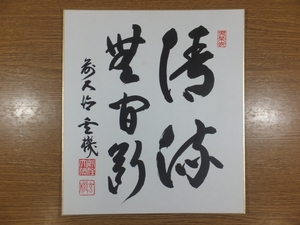 清流
無間断
前大徳